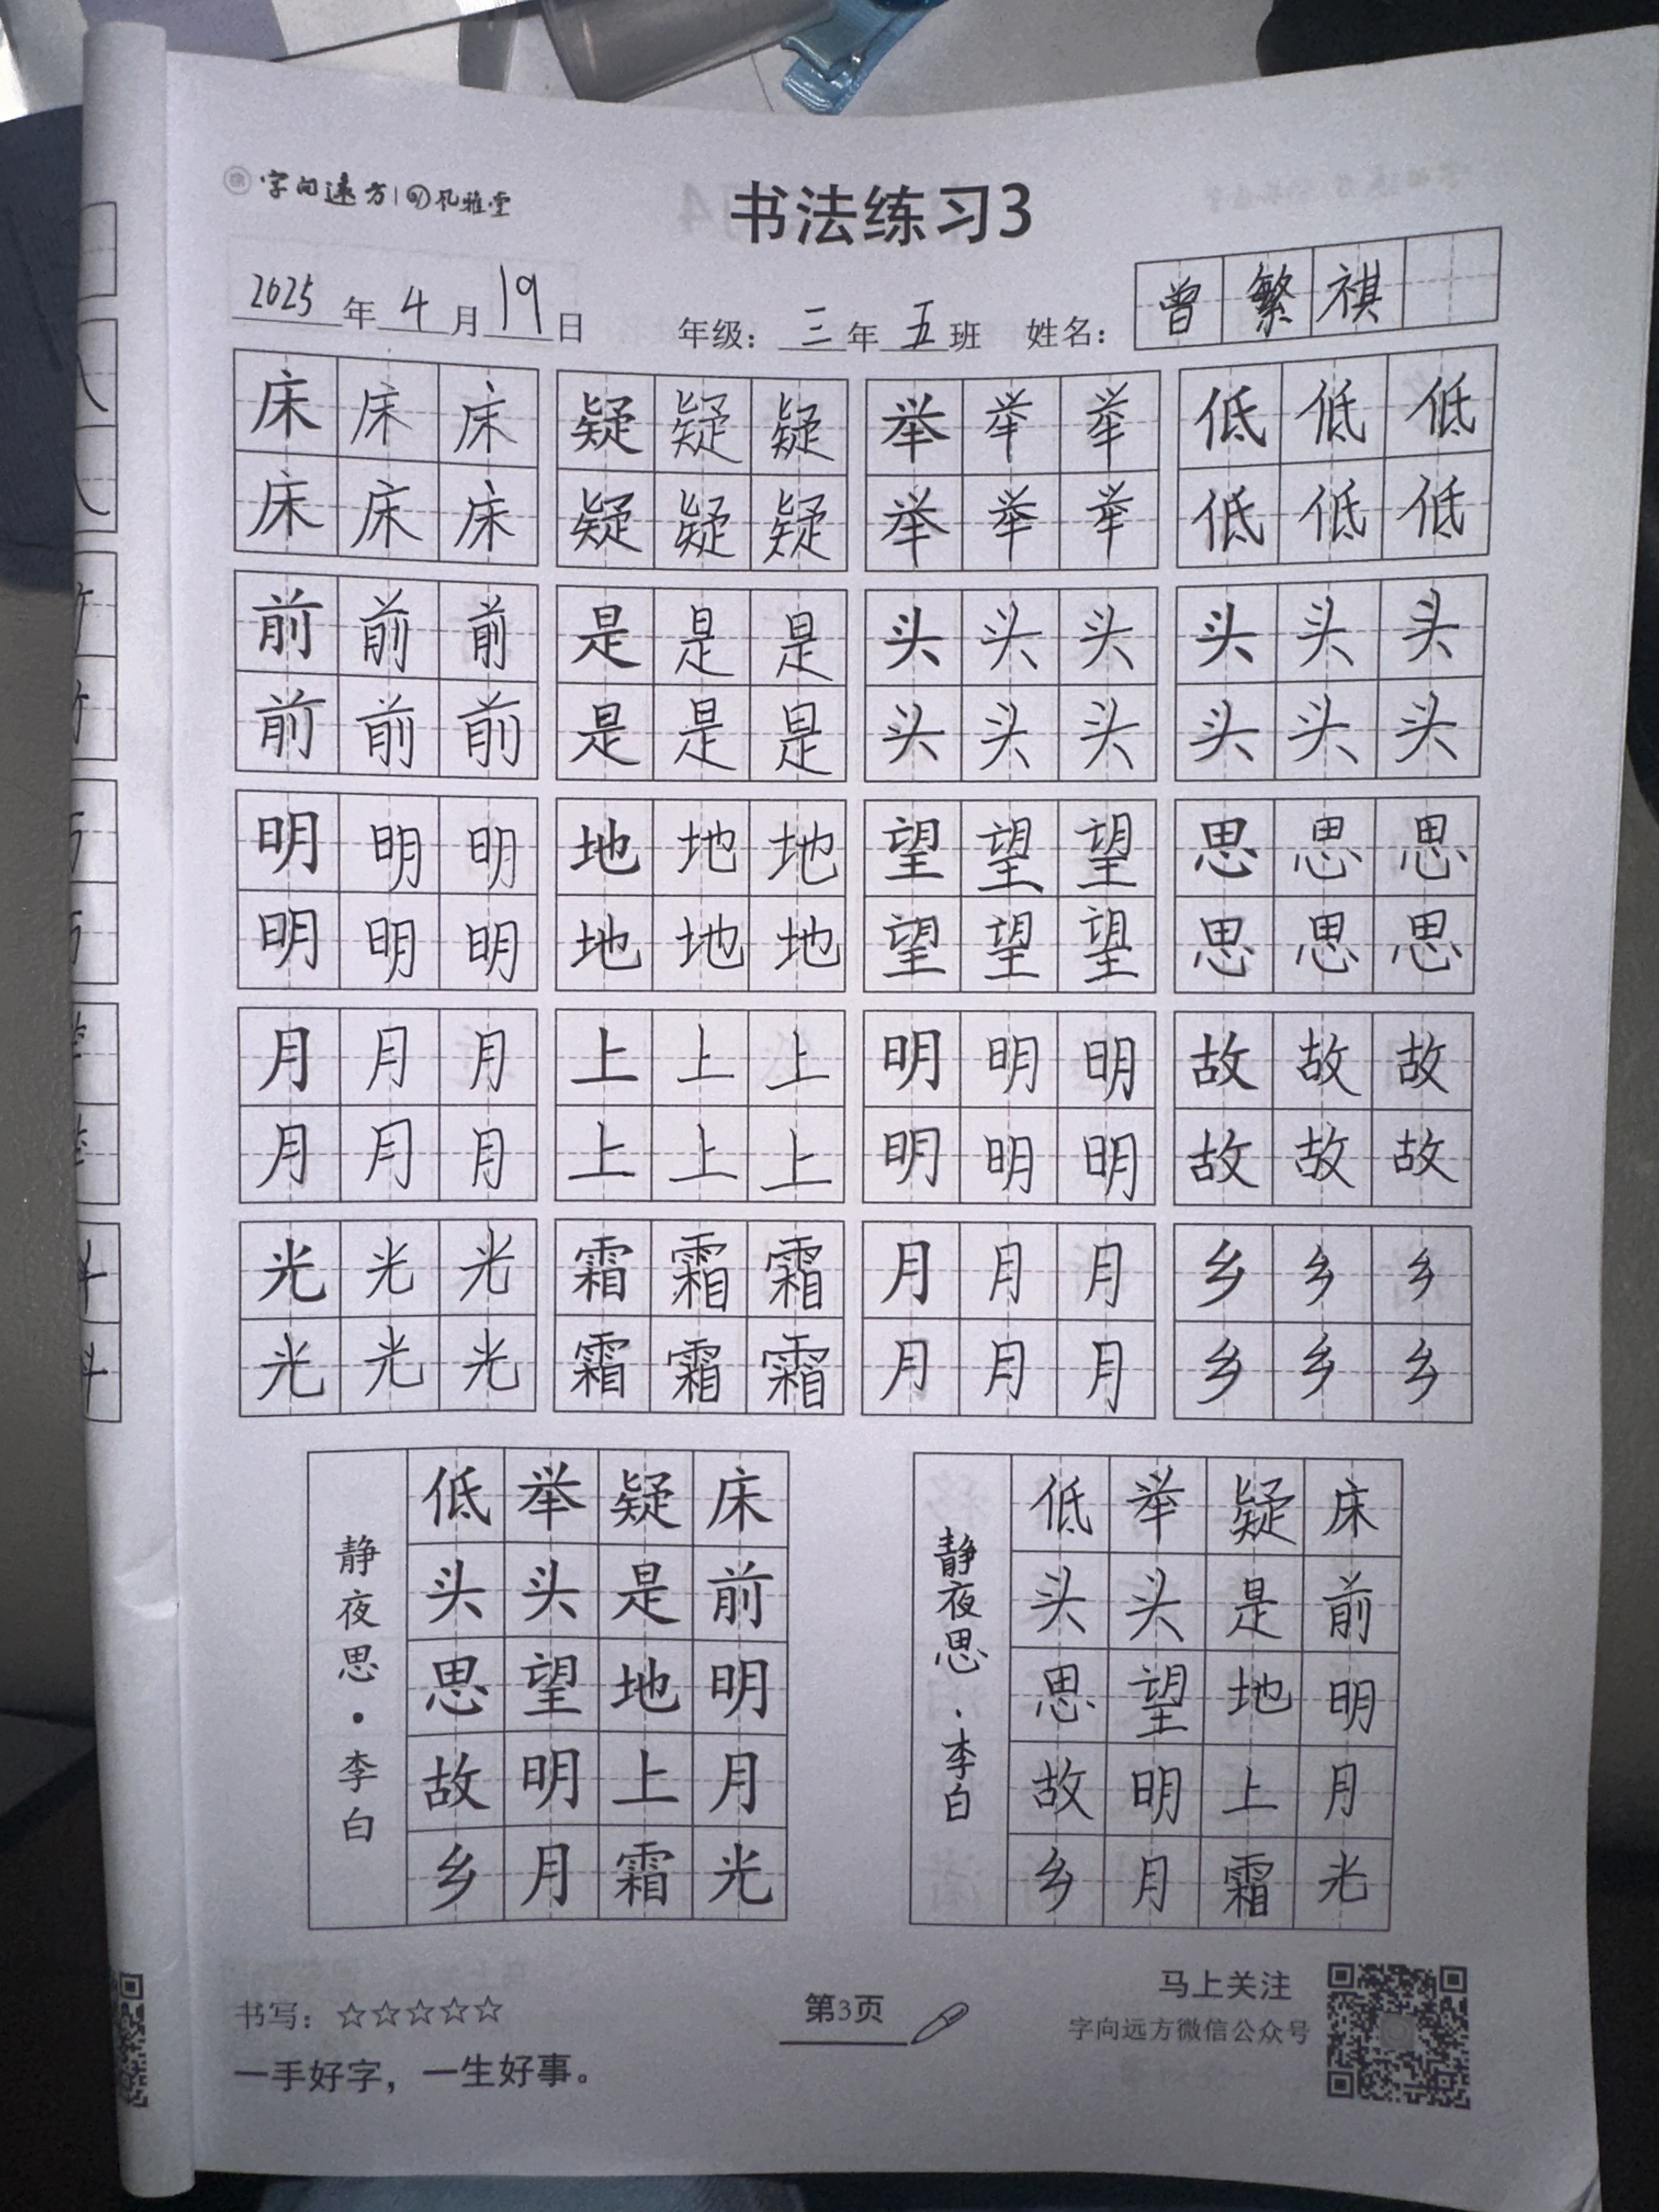 字向远方 | 风雅堂
书法练习3
2025年4月19日 年级：三年五班 姓名：曾繁祺
床床床 疑疑疑 举举举 低低低
床床床 疑疑疑 举举举 低低低
前前前 是是是 头头头 头头头
前前前 是是是 头头头 头头头
明明明 地地地 望望望 思思思
明明明 地地地 望望望 思思思
月月月 上上上 明明明 故故故
月月月 上上上 明明明 故故故
光光光 霜霜霜 月月月 乡乡乡
光光光 霜霜霜 月月月 乡乡乡
床前明月光
疑是地上霜
举头望明月
低头思故乡
静夜思·李白
床前明月光
疑是地上霜
举头望明月
低头思故乡
静夜思·李白
书写：☆☆☆☆☆
一手好字，一生好事。
第3页
马上关注
字向远方微信公众号